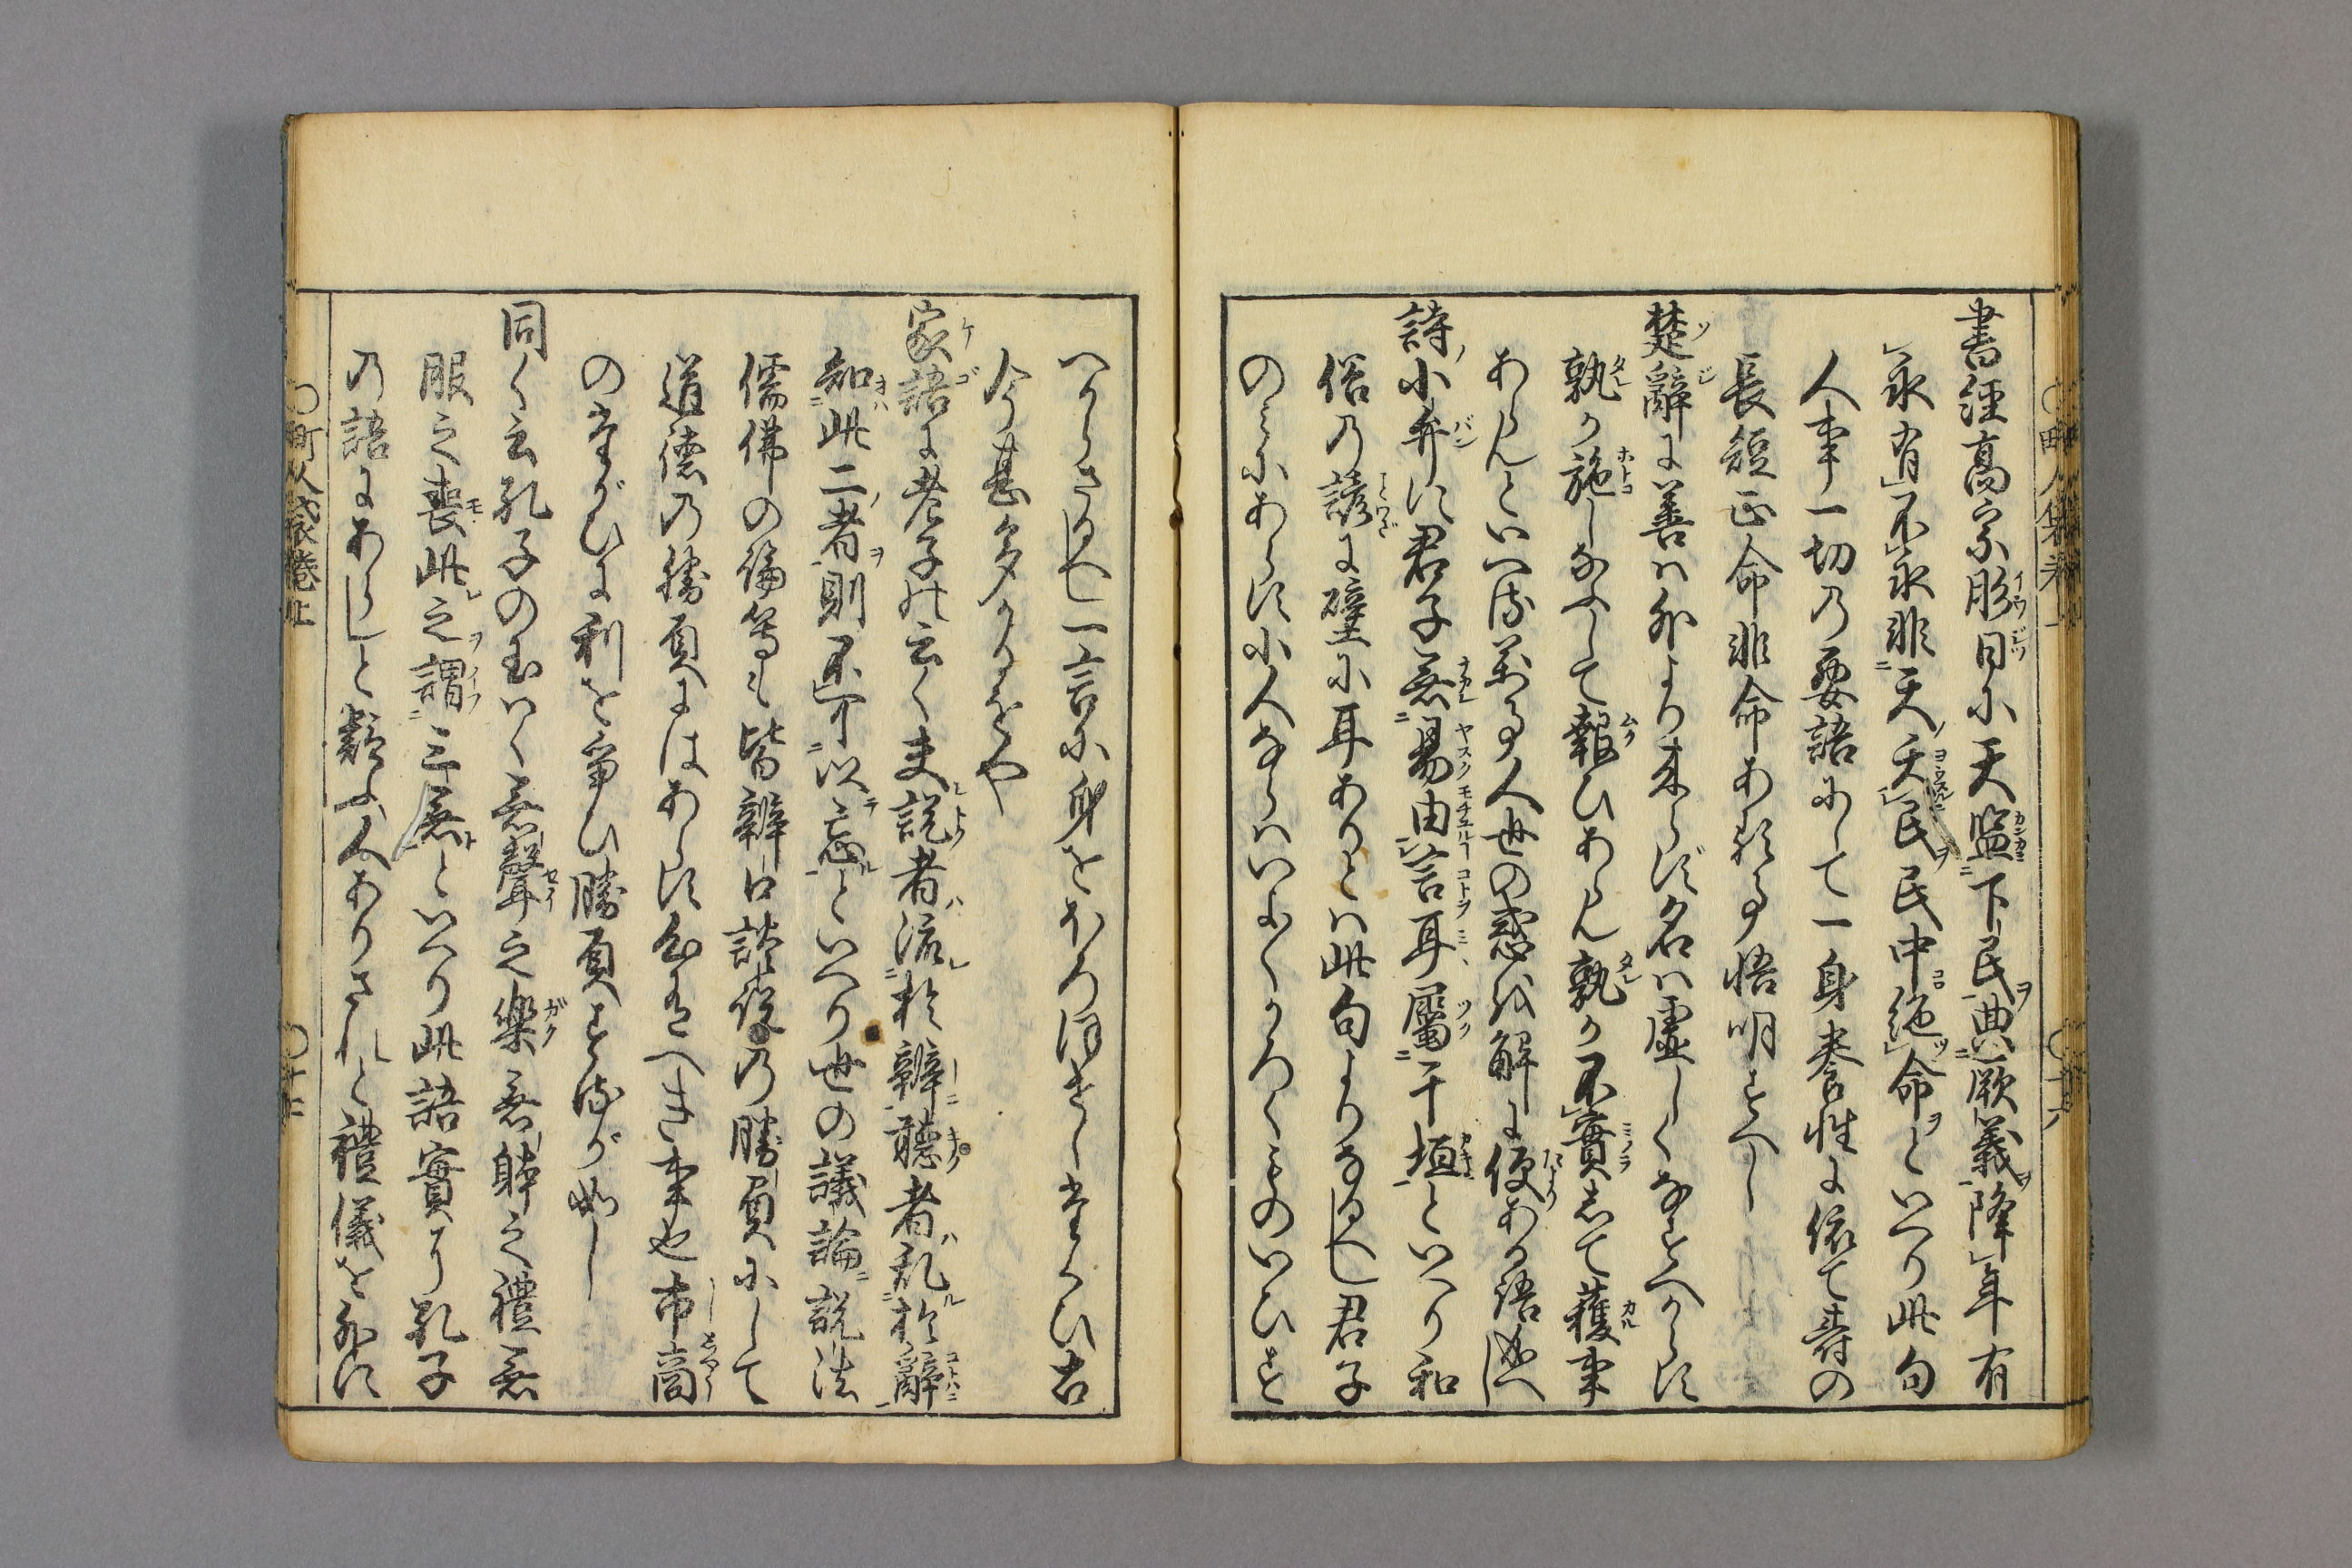 書經高宗肜日に天監下民典厥義降年有
永有不永非天夭民民中絶命といへり此句
人事一切の要語にして一身養性に依て壽の
長短正命非命ある事悟明すへし
楚辭に善は外より来らず名は虚しくなすへからす
孰か施しなふして報ひあらん孰か不實して穫事
あらんといへる萬事人世の惑を解に便ある語
詩小弁に君子無易由言耳屬于垣といへり和
俗の諺に壁に耳ありとは此句よりなるへし君子
のみにあらす小人ならはいよ〱かろくものいひす
へからさるへし一言に身をほろほせしたくひ古
今甚多かるをや
家語に老子の云く夫説者流於辨聽者乱於辭
知此二者則不可以忘といへり世の議論説法
儒佛の徧等も皆辨口談役の勝負にして
道徳の勝負にはあらす心有へき事也市商
のたがひに利を争ひ勝負するが如し
同く云孔子の玉はく無聲之樂無體之禮無
服之喪此之謂三無といへり此語實に孔子
の語にあらしと疑ふ人ありされと禮儀を外に
町人袋巻上